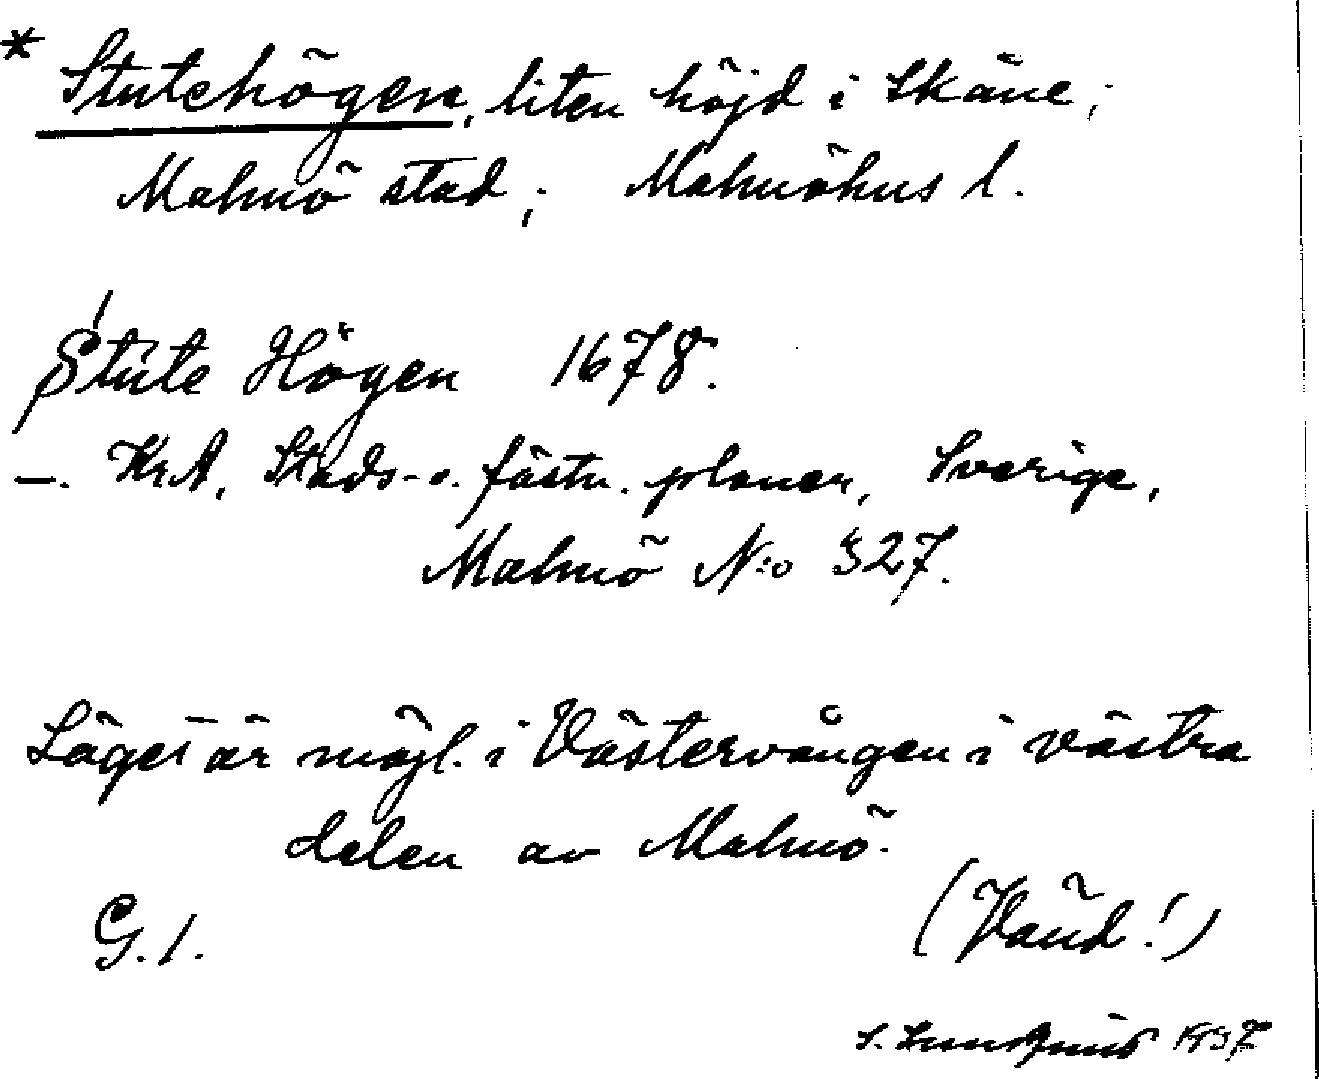 * Stutehögen, liten höjd i Skåne,
Malmö stad, Malmöhus l.
Stute Högen 1678.
–. KrA. Stads- o. fästn. planer, Sverige,
Malmö N:o 327.
Läget är möjl. i Västervången i västra
delen av Malmö.
(Vänd!)
G. 1.
S. 1937